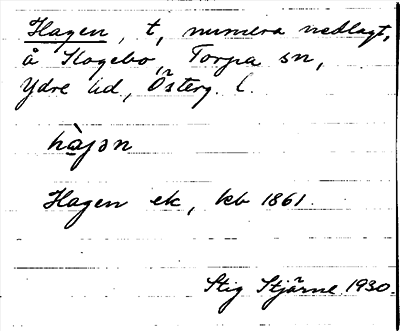 Hagen, t, numera nedlagt,
å Skogebo, Torpa sn,
Ydre hd, Österg. l.
hàjən
Hagen ek, kb 1861.
Stig Stjärne 1930.